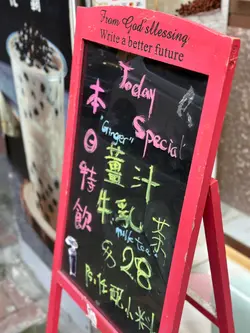 From God's Blessing
Write a better future
Today
Special
本
日
特
飲
"Ginger"
薑汁
牛乳茶
milk tea
$28
附任配小料